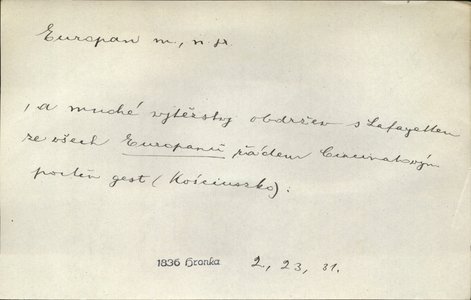 Europan m., n. pr.
, a mnohé výtěžky obdržev s Lafayettem
ze všech Europanů řádem Cincinatovým
poctěn gest (Kościuszko).
1836 Hronka 2, 23, 31.